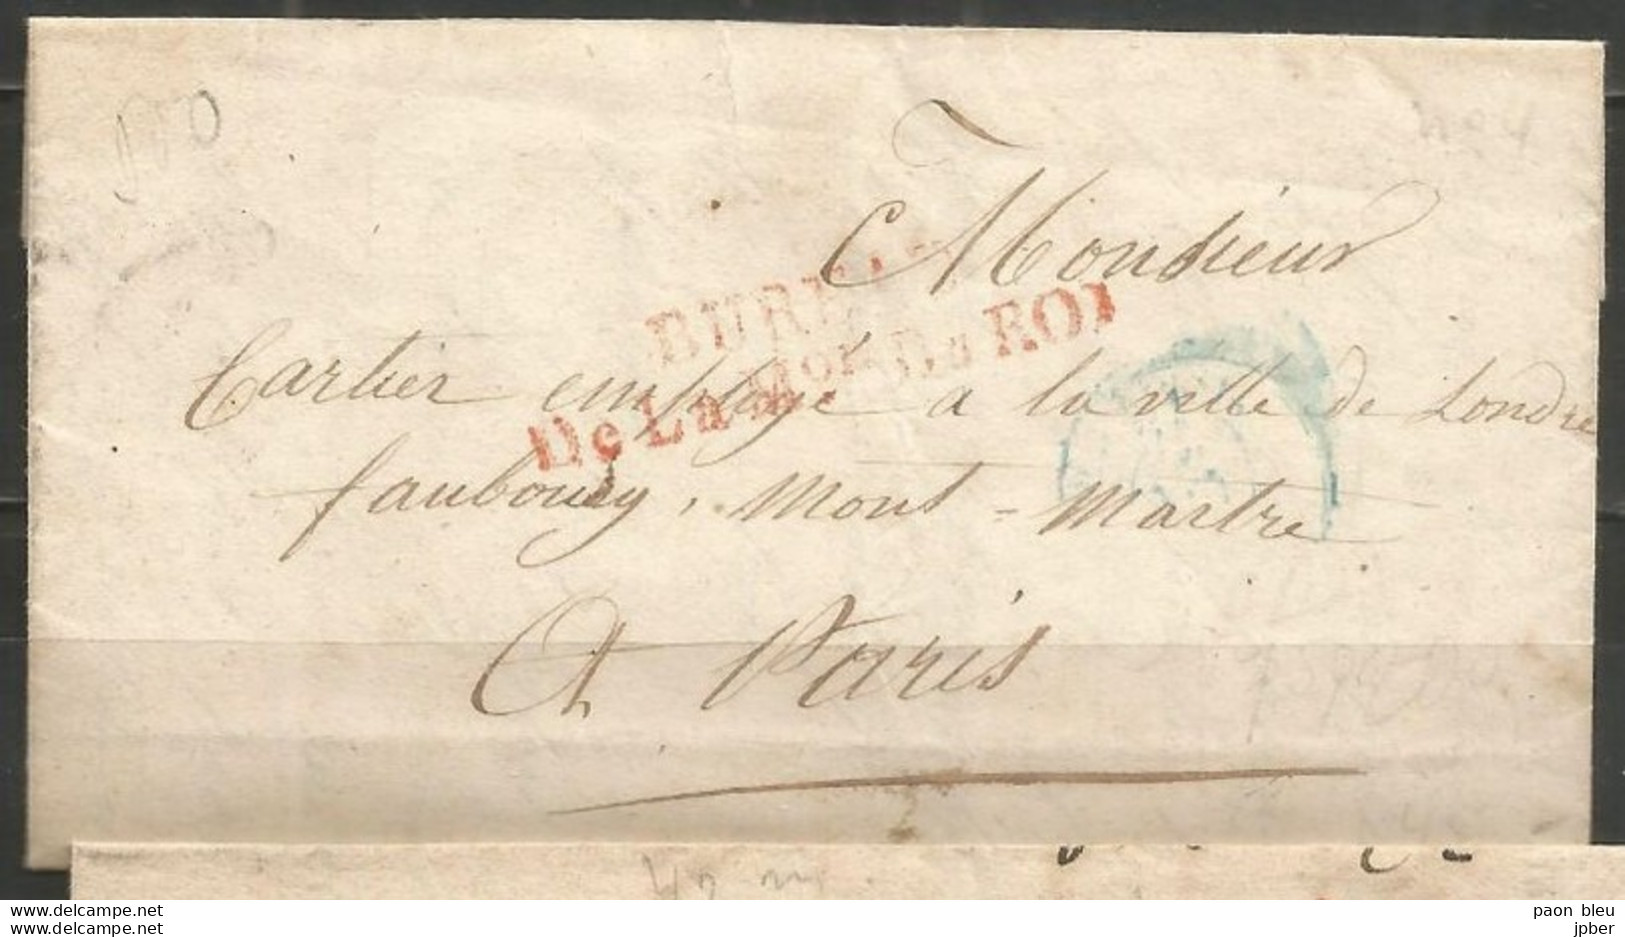 Monsieur
BUREAU
De La Mon Du ROI
Cartier employé a la ville de Londre
faubourg, Mont-Martre
A Paris
www.delcampe.net
paon bleu
jpber